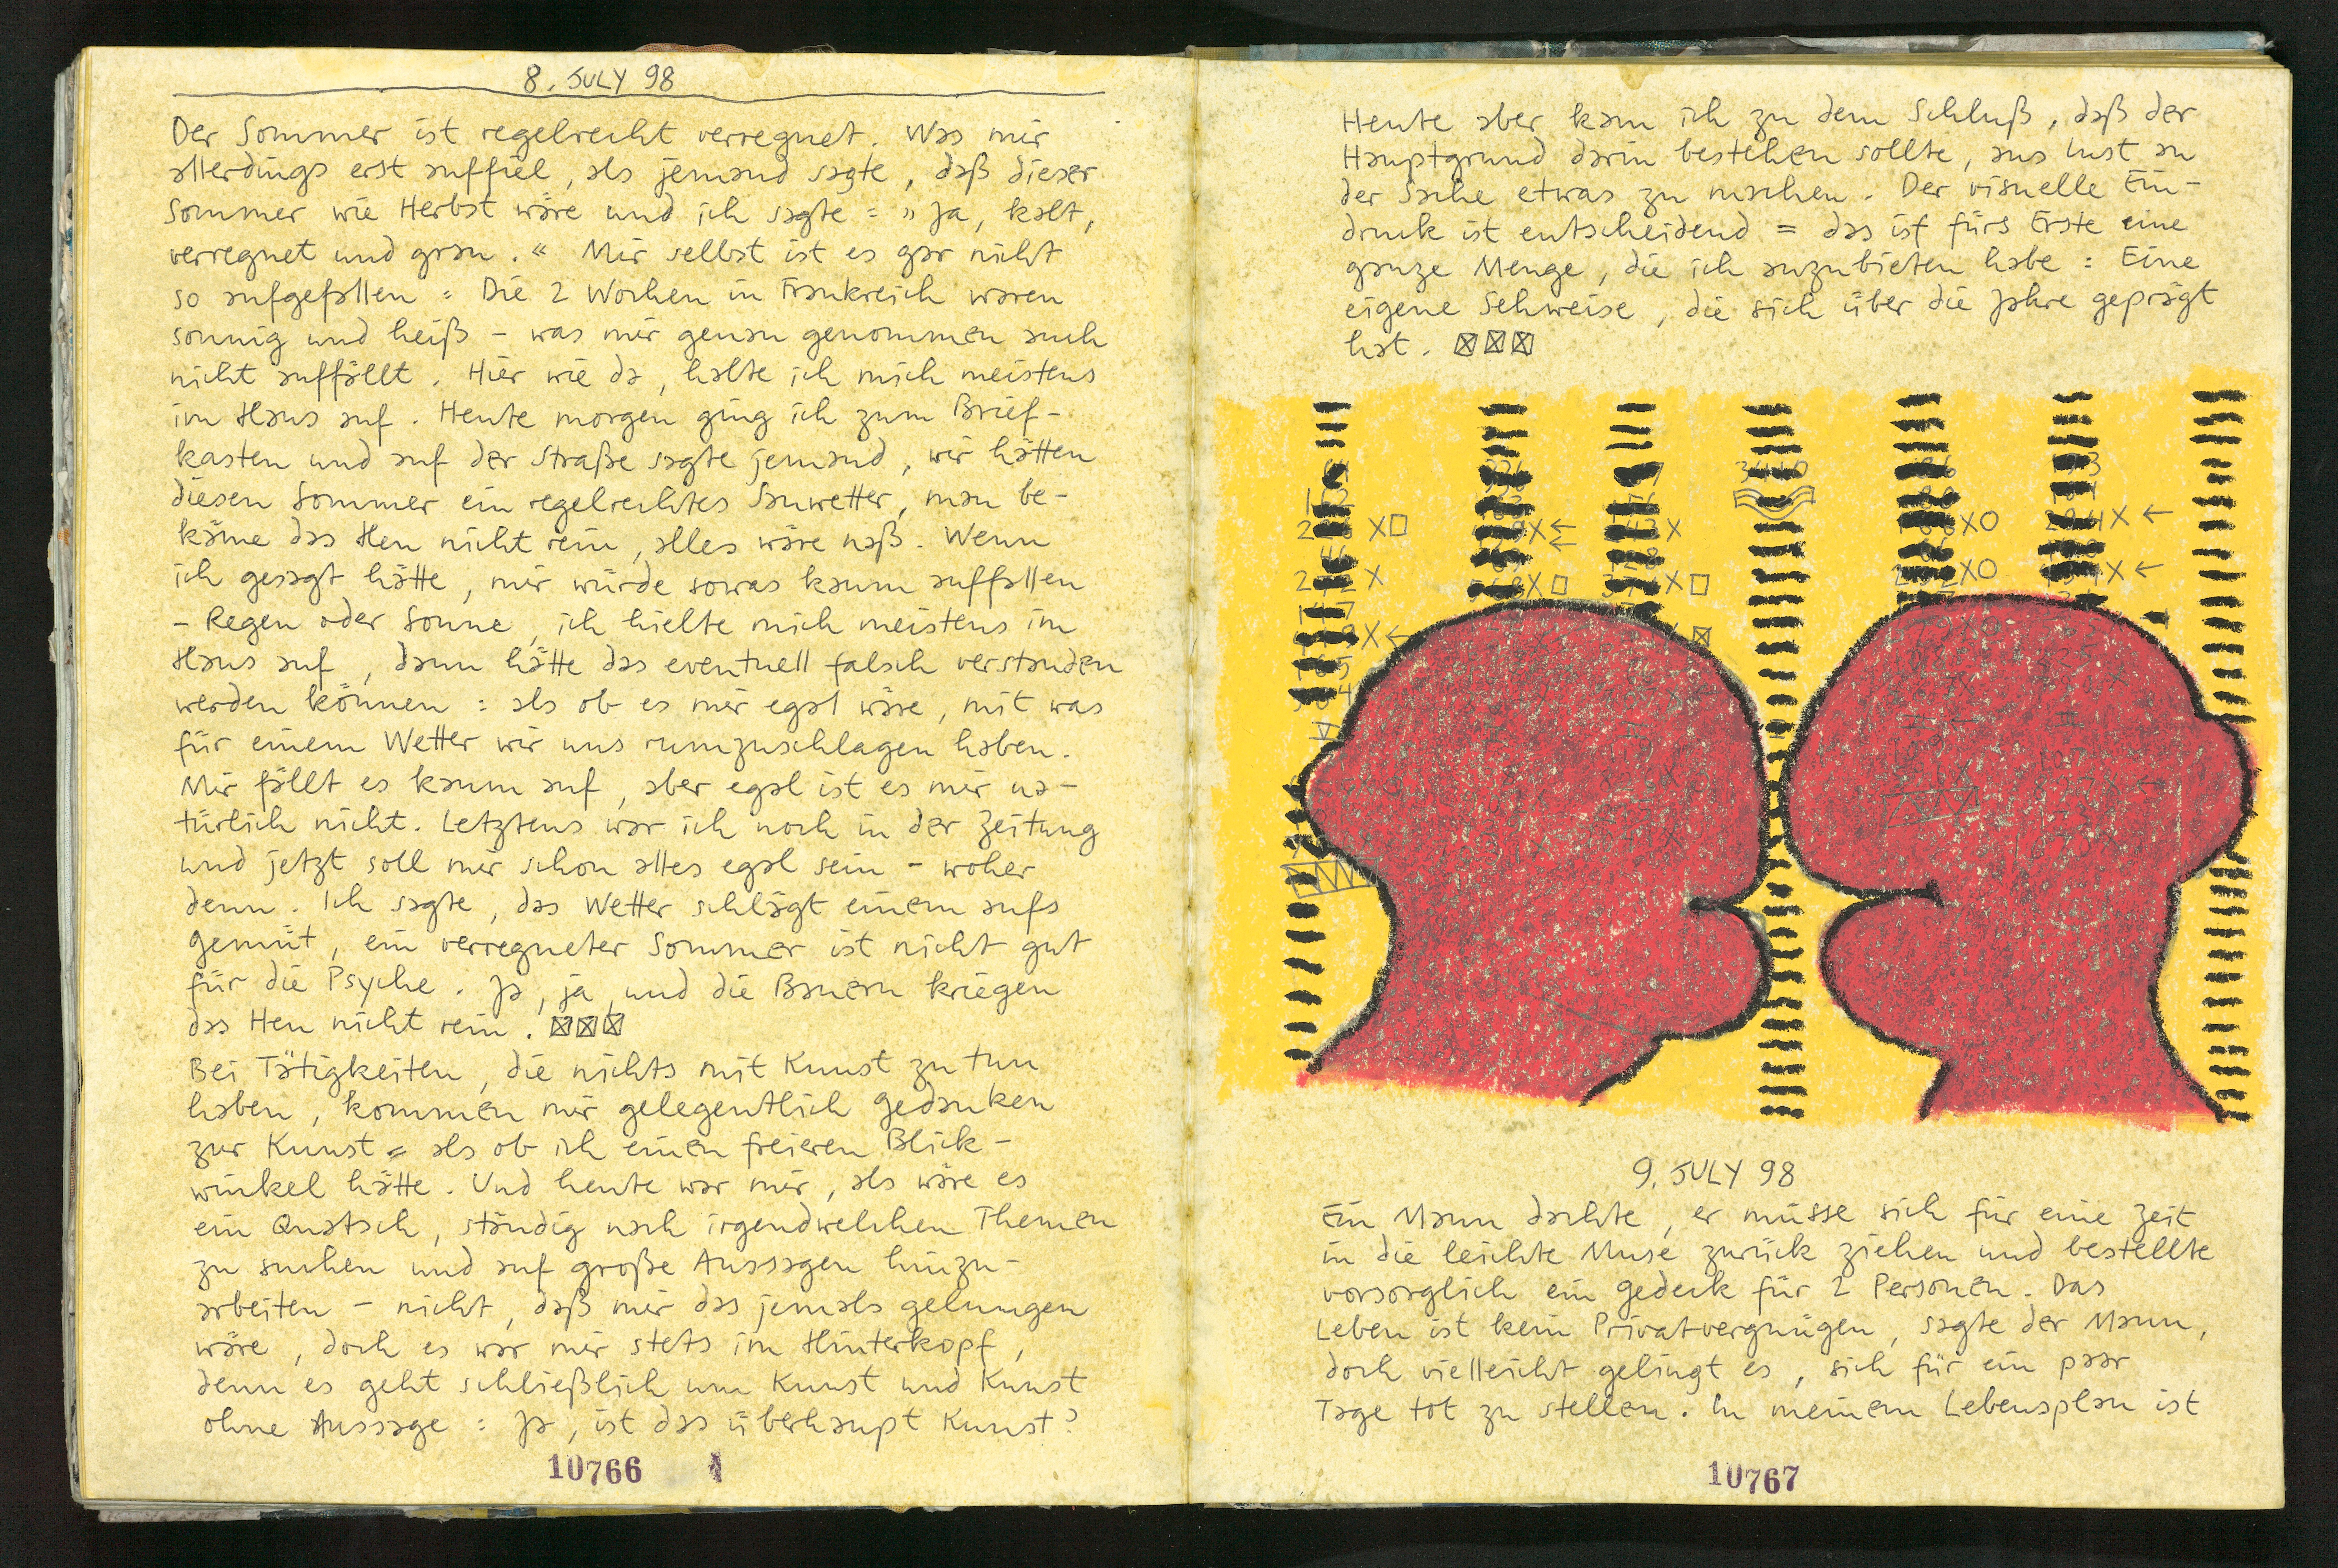 8. JULY 98
Der Sommer ist regelrecht verregnet. Was mir
allerdings erst auffiel, als jemand sagte, daß dieser
Sommer wie Herbst wäre und ich sagte : » Ja, kalt,
verregnet und grau. « Mir selbst ist es gar nicht
so aufgefallen : Die 2 Wochen in Frankreich waren
sonnig und heiß – was mir genau genommen auch
nicht auffällt. Hier wie da, halte ich mich meistens
im Haus auf. Heute morgen ging ich zum Brief-
kasten und auf der Straße sagte jemand, wir hätten
diesen Sommer ein regelrechtes Sauwetter, man be-
käme das Heu nicht rein, alles wäre naß. Wenn
ich gesagt hätte, mir würde sowas kaum auffallen
– Regen oder Sonne, ich hielte mich meistens im
Haus auf, dann hätte das eventuell falsch verstanden
werden können : als ob es mir egal wäre, mit was
für einem Wetter wir uns rumzuschlagen haben.
Mir fällt es kaum auf, aber egal ist es mir na-
türlich nicht. Letztens war ich noch in der Zeitung
und jetzt soll mir schon alles egal sein – woher
denn. Ich sagte, das Wetter schlägt einem aufs
Gemüt, ein verregneter Sommer ist nicht gut
für die Psyche. Ja, ja, und die Bauern kriegen
das Heu nicht rein. ☒☒☒
Bei Tätigkeiten, die nichts mit Kunst zu tun
haben, kommen mir gelegentlich Gedanken
zur Kunst = als ob ich einen freieren Blick-
winkel hätte. Und heute war mir, als wäre es
ein Quatsch, ständig nach irgendwelchen Themen
zu suchen und auf große Aussagen hinzu-
arbeiten – nicht, daß mir das jemals gelungen
wäre, doch es war mir stets im Hinterkopf,
denn es geht schließlich um Kunst und Kunst
ohne Aussage : Ja, ist das überhaupt Kunst?
10766
Heute aber kam ich zu dem Schluß, daß der
Hauptgrund darin bestehen sollte, aus Lust an
der Sache etwas zu machen. Der visuelle Ein-
druck ist entscheidend = das ist fürs Erste eine
ganze Menge, die ich anzubieten habe : Eine
eigene Sehweise, die sich über die Jahre geprägt
hat. ☒☒☒
9. JULY 98
Ein Mann dachte, er müsse sich für eine Zeit
in die leichte Muse zurück ziehen und bestellte
vorsorglich ein Gedeck für 2 Personen. Das
Leben ist kein Privatvergnügen, sagte der Mann,
doch vielleicht gelingt es, sich für ein paar
Tage tot zu stellen. In meinem Lebensplan ist
10767